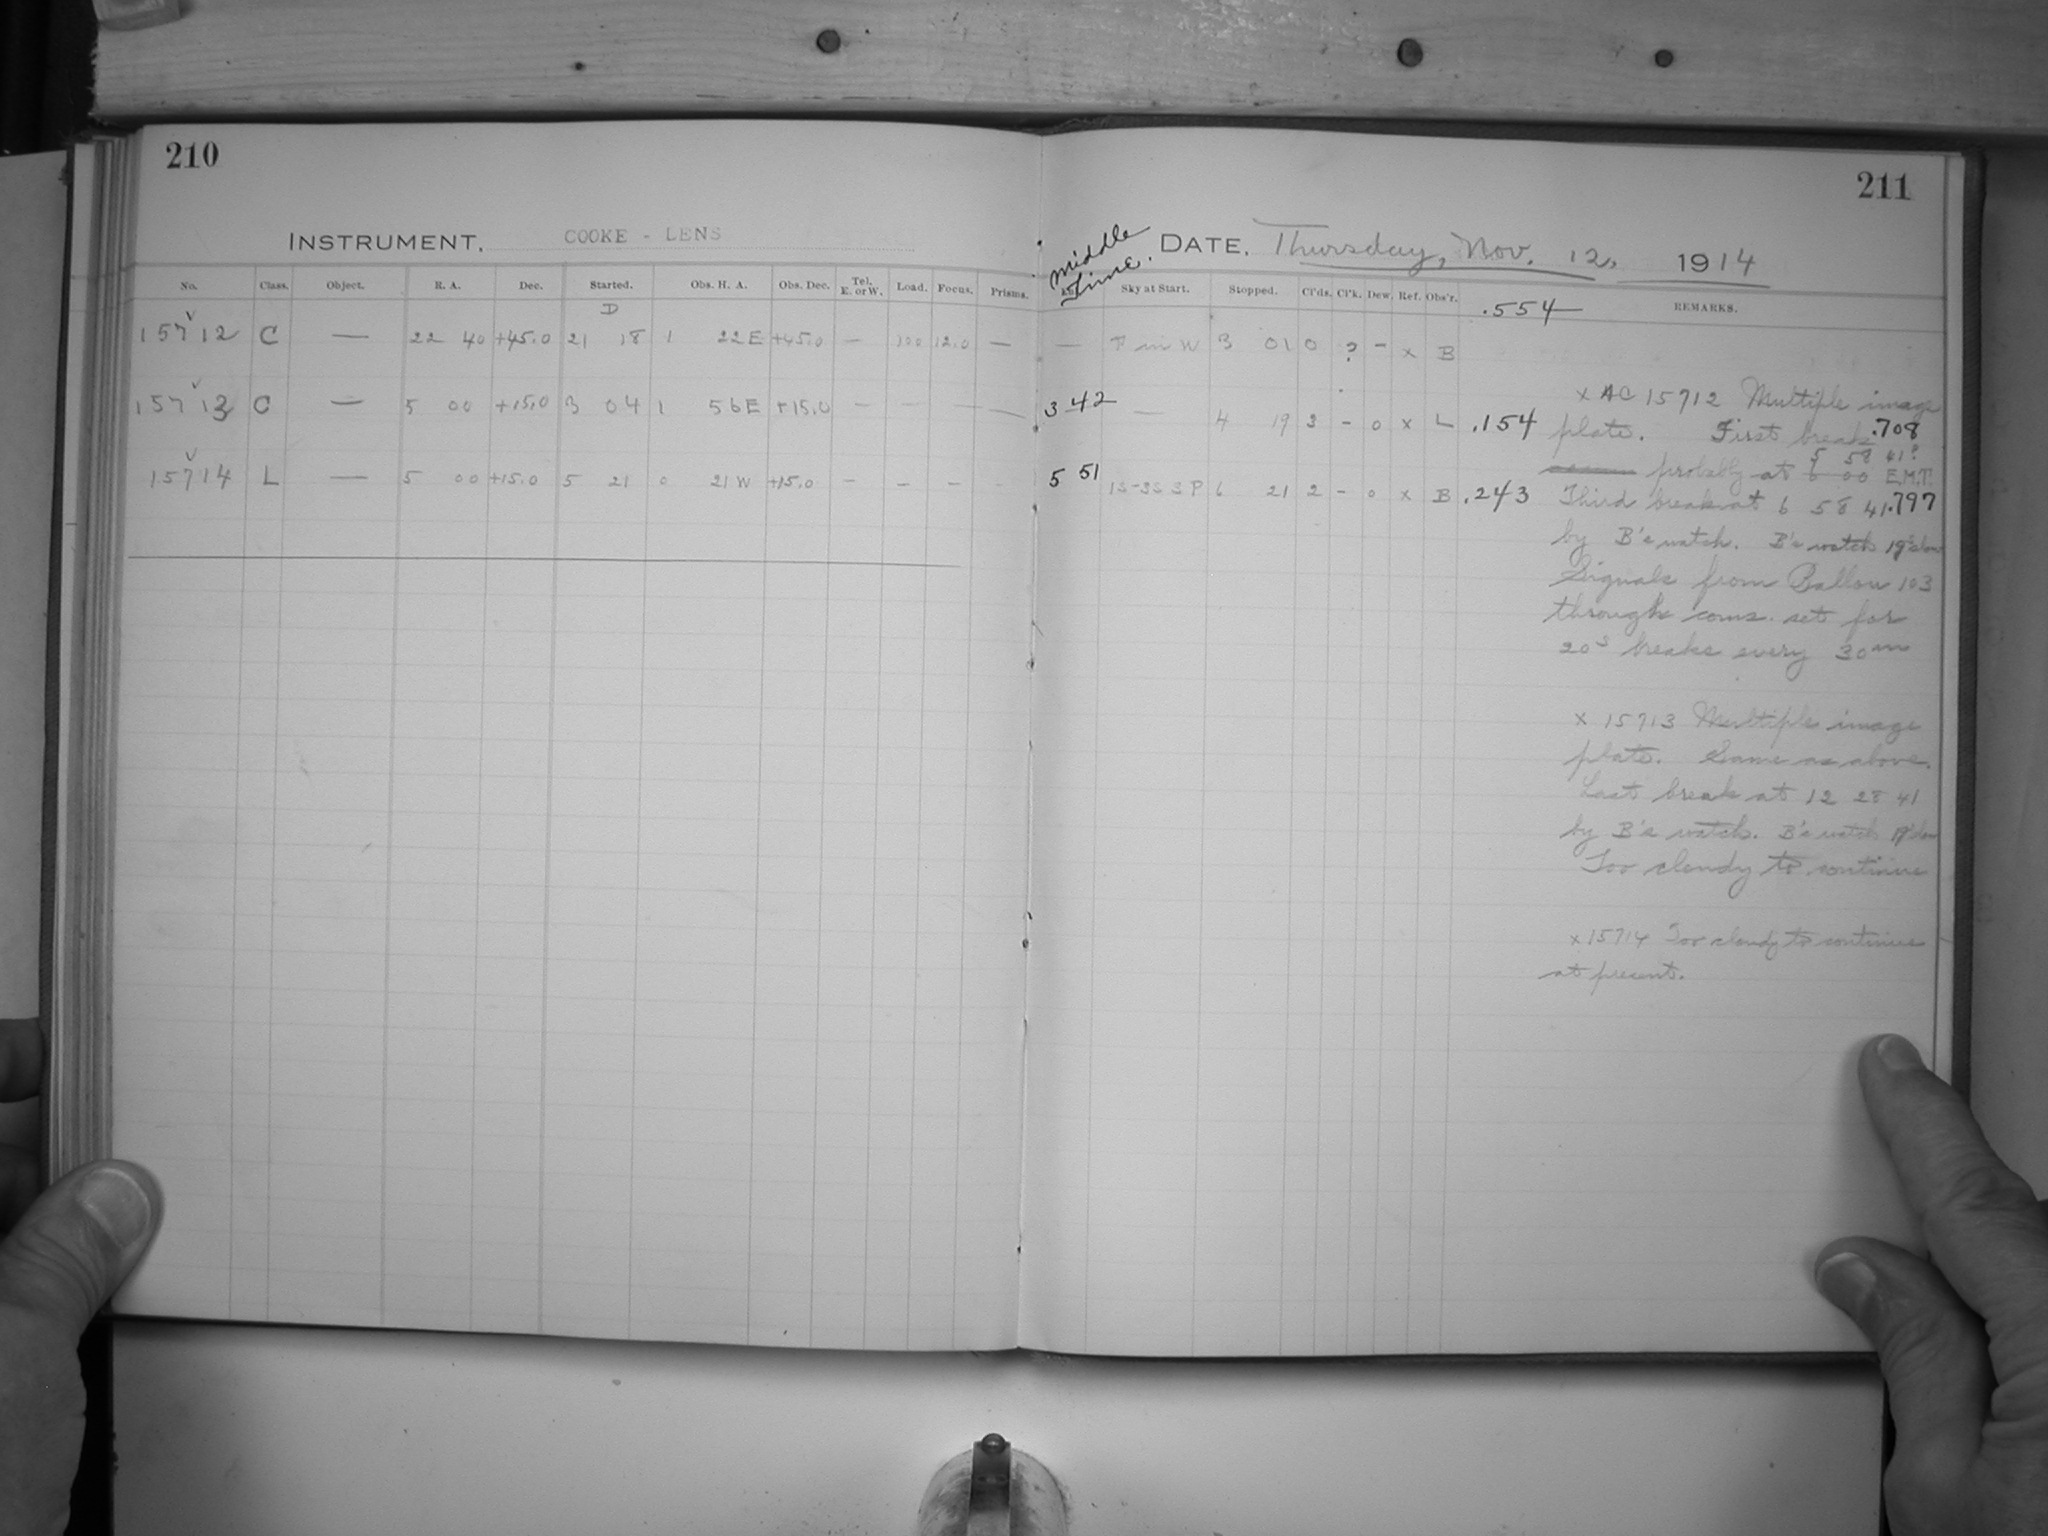 210
211
INSTRUMENT, COOKE - LENS
Middle Time. DATE, Thursday, Nov. 12, 1914
No. Class. Object. R. A. Dec. Started. Obs. H. A. Obs. Dec. Tel. E. or W. Load. Focus. Prisms. Sky at Start. Stopped. Cl'ds. Cl'k. Dew. Ref. Obs'r. .554 REMARKS.
D
15712 C — 22 40 +45.0 21 18 1 22 E +45.0 — 100 12.0 — — W 3 01 0 ? – x B
15713 C — 5 00 +15.0 3 04 1 56 E +15.0 — — — — 3 42 — 4 19 3 - 0 x L .154
15714 L — 5 00 +15.0 5 21 0 21 W +15.0 - - - - 5 51 1S-3S SP 6 21 2 - 0 x B .243
x AC 15712 Multiple image
plate. First break .708
5 58 41?
probably at 6 00 E.M.T.
Third break at 6 58 41 .797
by B's watch. B's watch 19s slow
Signals from Ballou 103
through coms. set for
20s breaks every 30m
x 15713 Multiple image
plate. Same as above.
Last break at 12 28 41
by B's watch. B's watch 19s slow
Too cloudy to continue
x 15714 Too cloudy to continue
at present.